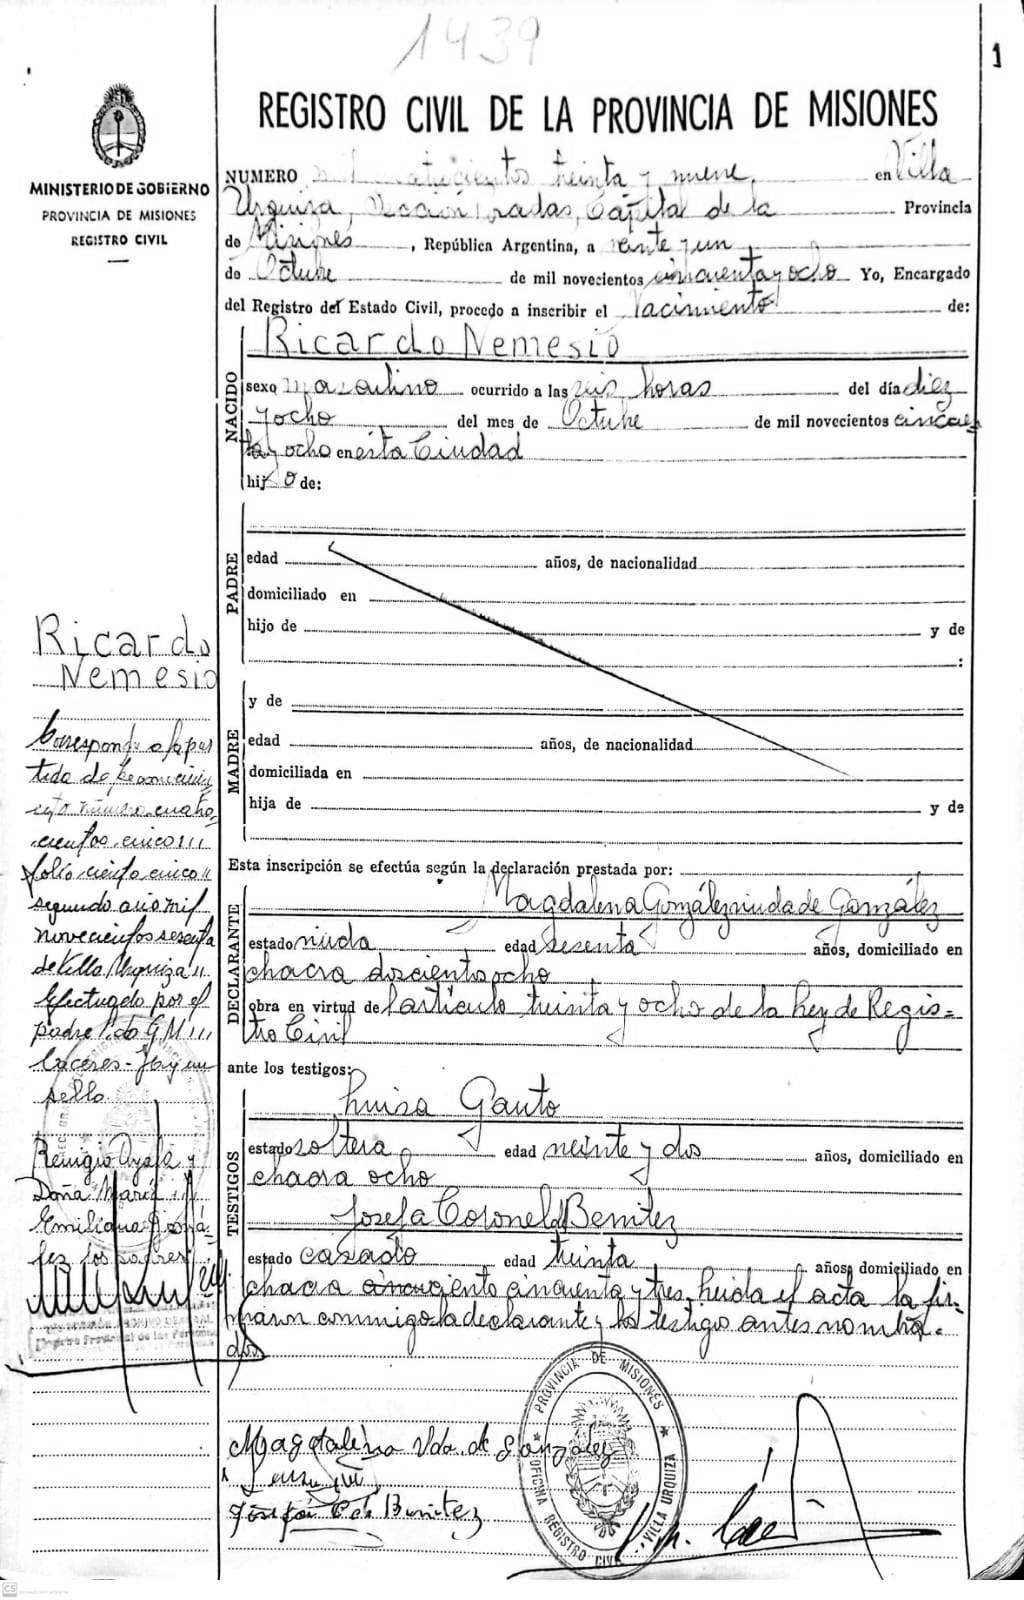 1439
1
MINISTERIO DE GOBIERNO
PROVINCIA DE MISIONES
REGISTRO CIVIL
REGISTRO CIVIL DE LA PROVINCIA DE MISIONES
NUMERO mil cuatrocientos treinta y nueve, en Villa
Urquiza, Sección Posadas, Capital de la Provincia
de Misiones, República Argentina, a veinte y un
de Octubre de mil novecientos cincuenta y ocho Yo, Encargado
del Registro del Estado Civil, procedo a inscribir el Nacimiento de:
NACIDO
Ricardo Nemesio
sexo masculino ocurrido a las seis horas del día diez
y ocho del mes de Octubre de mil novecientos cincuen=
ta y ocho en ésta Ciudad
hijo de:
PADRE
edad años, de nacionalidad
domiciliado en
hijo de y de
:
MADRE
y de
edad años, de nacionalidad
domiciliada en
hija de y de
Esta inscripción se efectúa según la declaración prestada por:
DECLARANTE
Magdalena González viuda de González
estado viuda edad sesenta años, domiciliado en
chacra doscientos ocho
obra en virtud del artículo treinta y ocho de la Ley de Regis=
tro Civil
ante los testigos:
TESTIGOS
Luisa Gauto
estado soltera edad veinte y dos años, domiciliado en
chacra ocho
Josefa Coronel de Benitez
estado casado edad treinta años, domiciliado en
chacra ciento cincuenta y tres, leida el acta la fir=
maron conmigo la declarante y los testigo antes nombra=
dos.
Magdalena Vda. de González
Josefa C de Benitez
PROVINCIA DE MISIONES
OFICINA REGISTRO CIVIL VILLA URQUIZA
Ricardo
Nemesio
Corresponde a la par
tida de Reconocimi
ento número cuatro
cientos cinco
folio ciento cinco
segundo año mil
novecientos sesenta
de Villa Urquiza
Efectuado por el
padre
Cáceres - Hay un
sello.
Remigio Ayala y
Doña María
Emiliana Gonzá
lez los padres
Registro Provincial de las Personas
CS